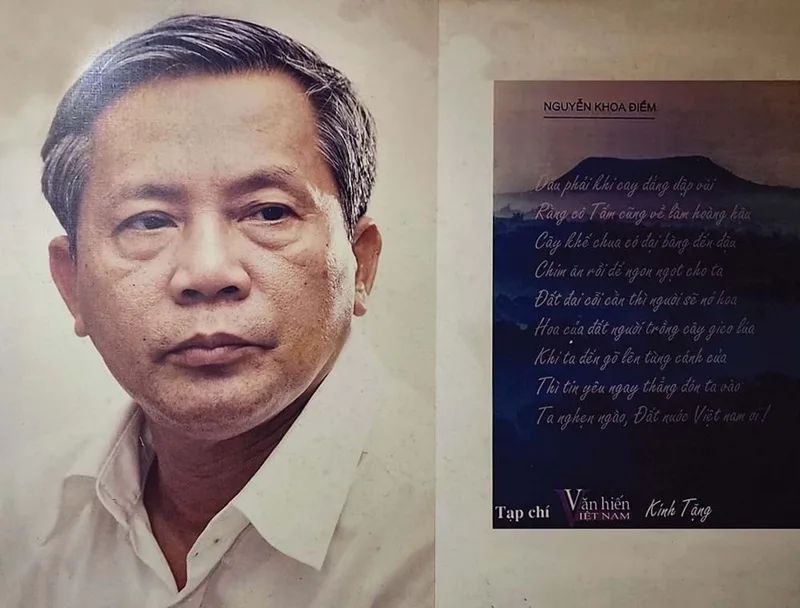 NGUYỄN KHOA ĐIỀM
Dẫu phải khi cay đắng dập vùi
Rằng cô Tấm cũng về làm hoàng hậu
Cây khế chua có đại bàng đến đậu
Chim ăn rồi để ngon ngọt cho ta
Đất đai cỗi cằn thì người sẽ nở hoa
Hoa của đất người trồng cây gieo lúa
Khi ta đến gõ lên từng cánh cửa
Thì tin yêu ngay thẳng đón ta vào
Ta nghẹn ngào, Đất nước Việt nam ơi !
Tạp chí Văn hiến VIỆT NAM Kính Tặng